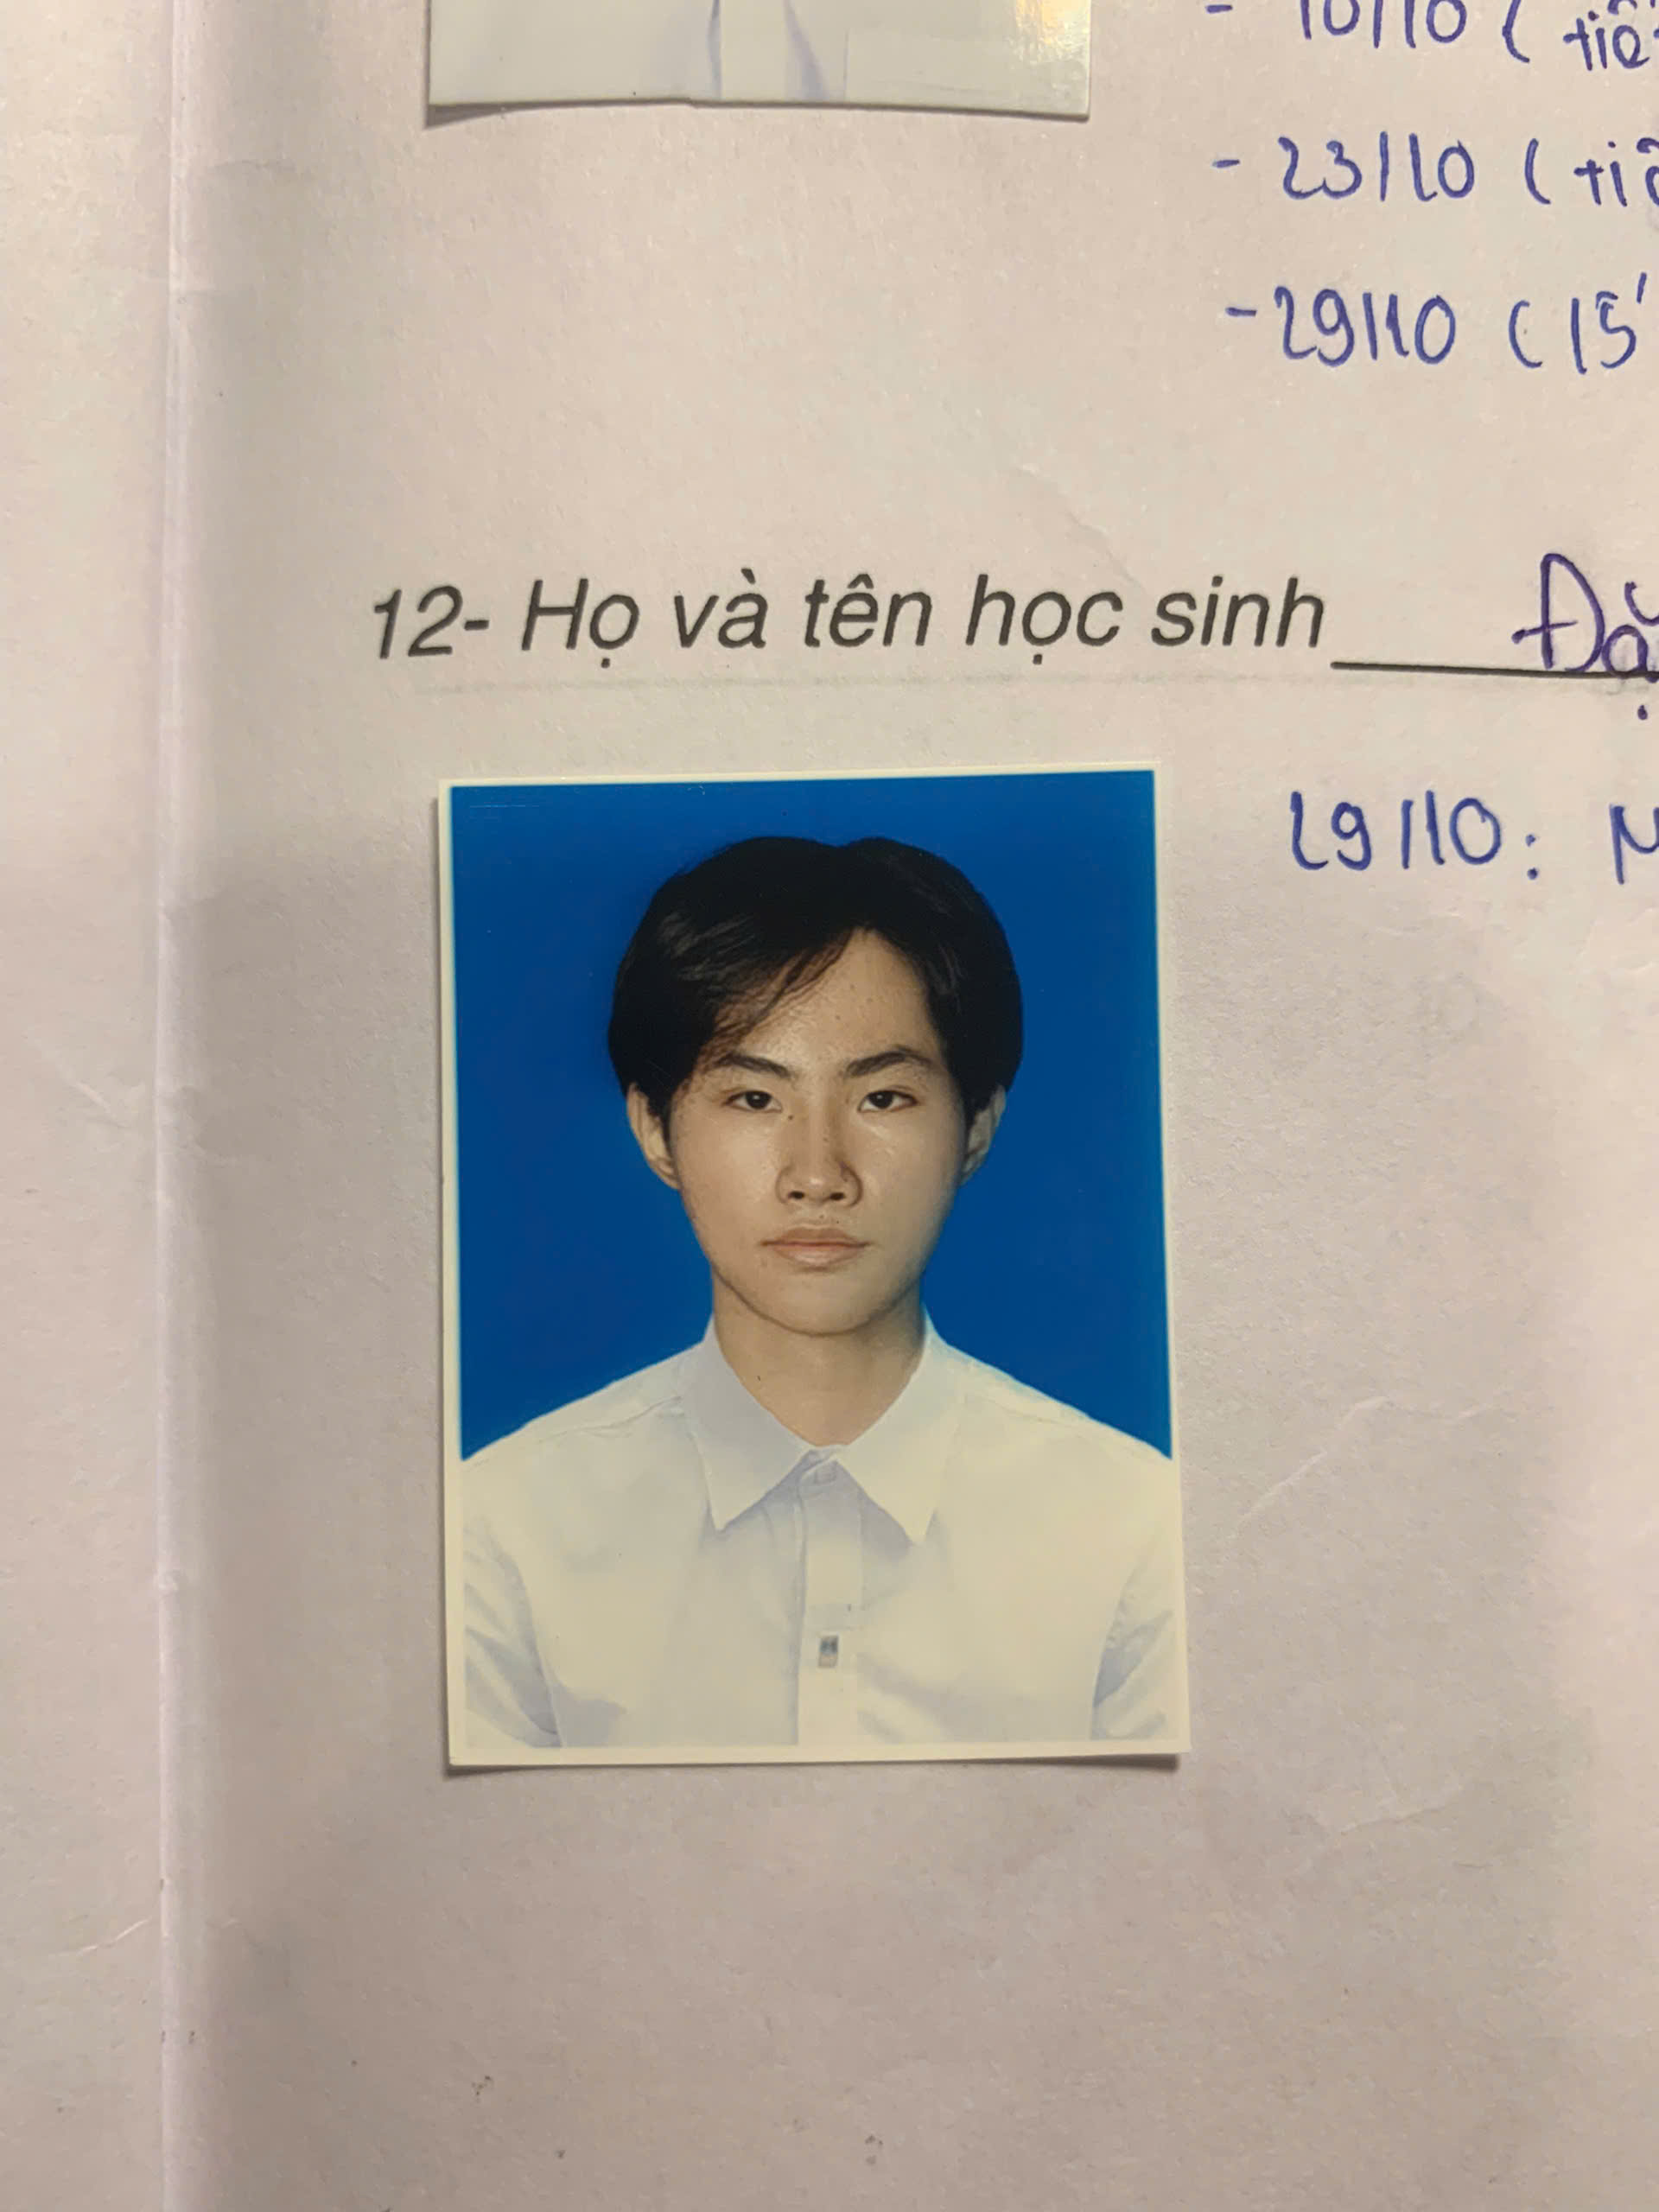 - 10/10 (
- 23/10 (
- 29/10 (15'
12- Họ và tên học sinh
29/10: